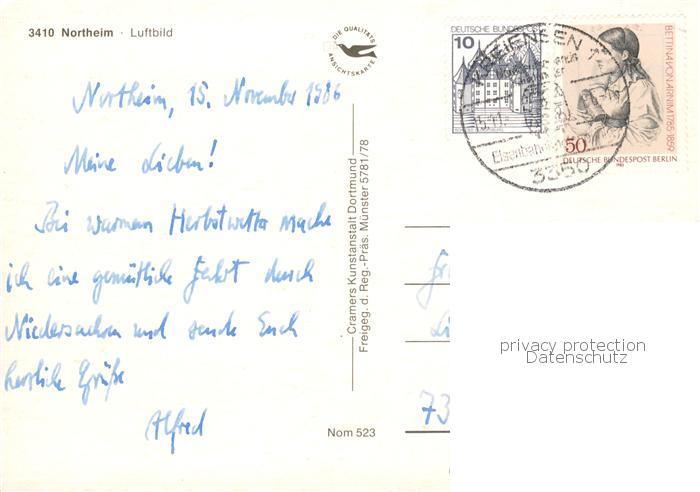 3410 Northeim · Luftbild
DIE QUALITÄTS
ANSICHTSKARTE
Northeim, 15. November 1986
Meine Lieben!
Bei warmem Herbstwetter mache
ich eine gemütliche Fahrt durch
Niedersachsen und sende Euch
herzliche Grüße
Alfred
Cramers Kunstanstalt Dortmund
Freigeg. d. Reg.-Präs. Münster 5781/78
Nom 523
DEUTSCHE BUNDESPOST
10
KREIENSEN
15.11.
Eisenbahn
3350
BETTINA VON ARNIM 1785-1859
50
DEUTSCHE BUNDESPOST BERLIN
1985
73
privacy protection
Datenschutz